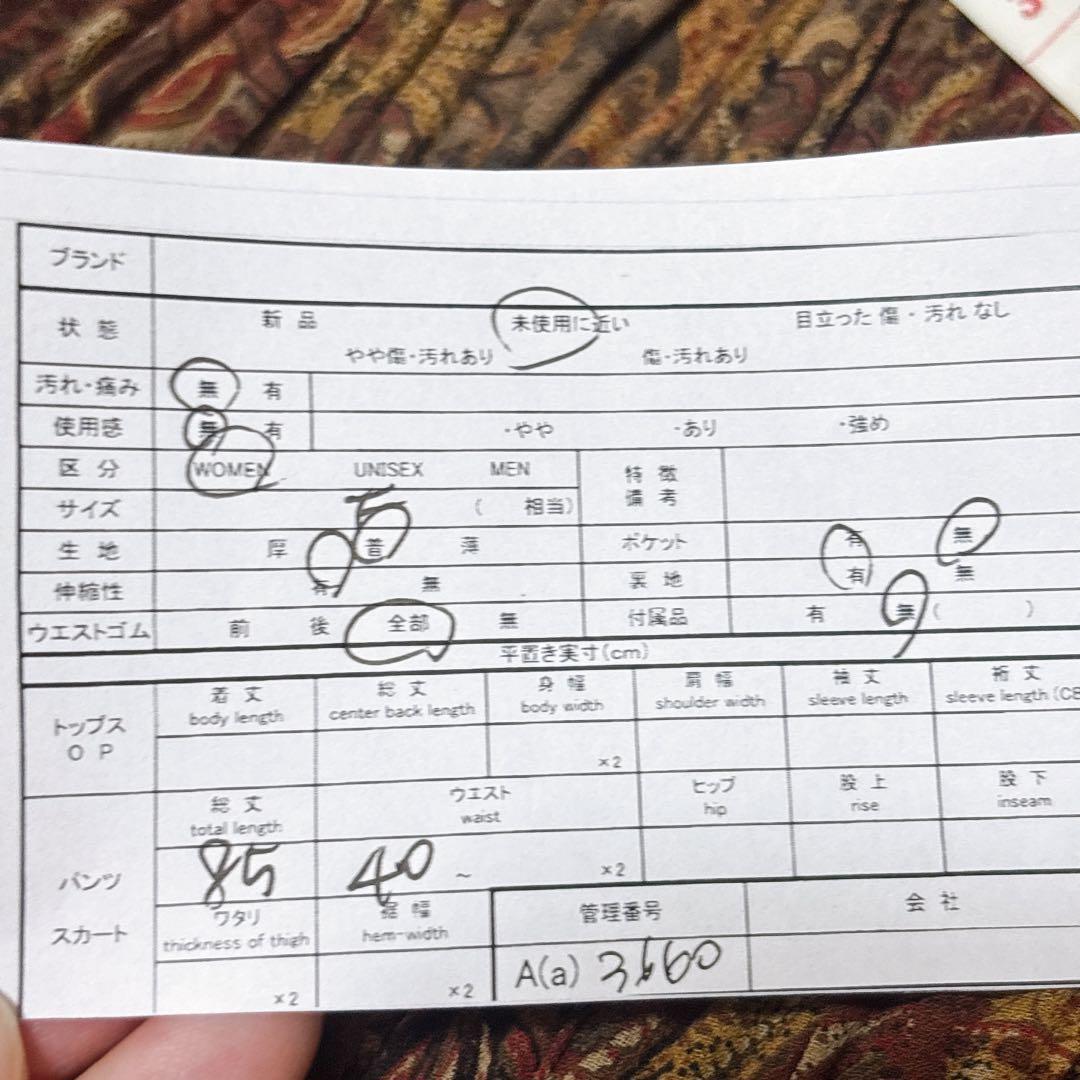 ブランド
状態 新品 未使用に近い 目立った傷・汚れなし
やや傷・汚れあり 傷・汚れあり
汚れ・痛み 無 有
使用感 無 有 ・やや ・あり ・強め
区分 WOMEN UNISEX MEN 特徴備考
サイズ 5 ( 相当)
生地 厚 普 薄 ポケット 有 無
伸縮性 有 無 裏地 有 無
ウエストゴム 前 後 全部 無 付属品 有 無 ( )
平置き実寸(cm)
トップス OP 着丈 総丈 身幅 肩幅 袖丈 裄丈
body length center back length body width shoulder width sleeve length sleeve length (CB
×2
総丈 ウエスト ヒップ 股上 股下
total length waist hip rise inseam
パンツ 85 40 ~ ×2
スカート ワタリ 裾幅 管理番号 会社
thickness of thigh hem-width
×2 ×2 A(a) 3660